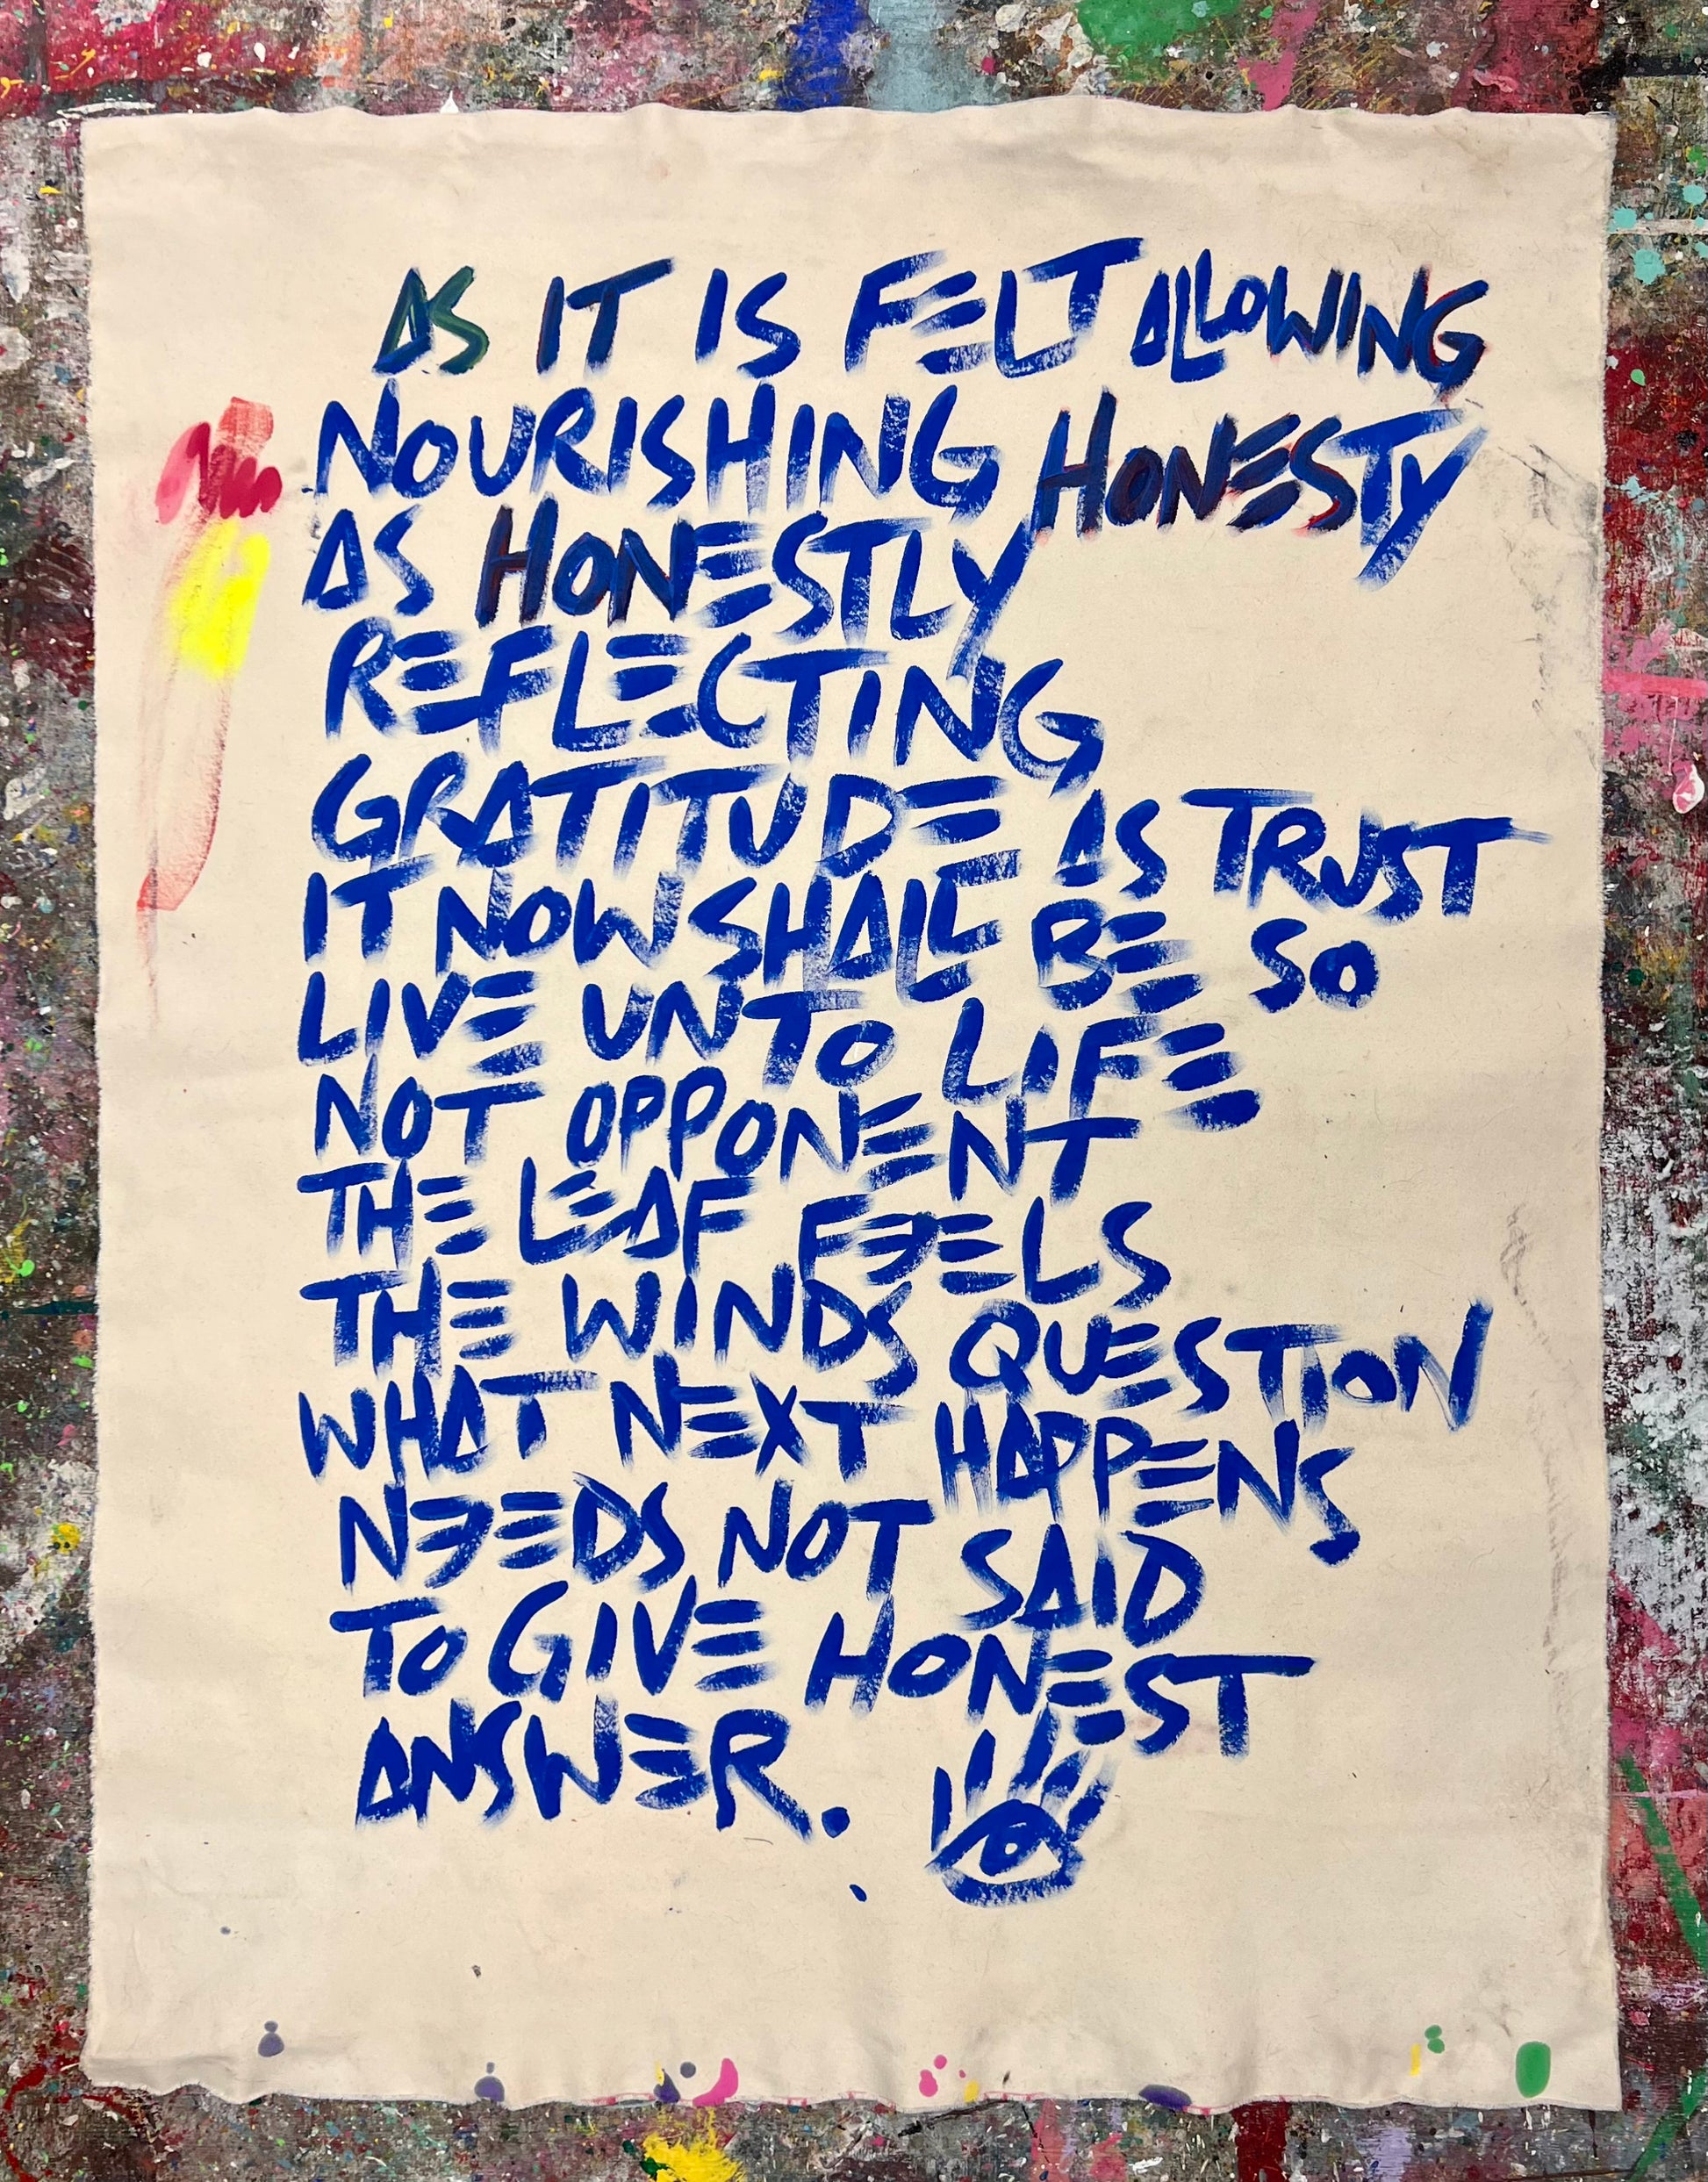 AS IT IS FELT ALLOWING
NOURISHING HONESTY
AS HONESTLY
REFLECTING
GRATITUDE AS TRUST
IT NOW SHALL BE SO
LIVE UNTO LIFE
NOT OPPONENT
THE LEAF FEELS
THE WINDS QUESTION
WHAT NEXT HAPPENS
NEEDS NOT SAID
TO GIVE HONEST
ANSWER.